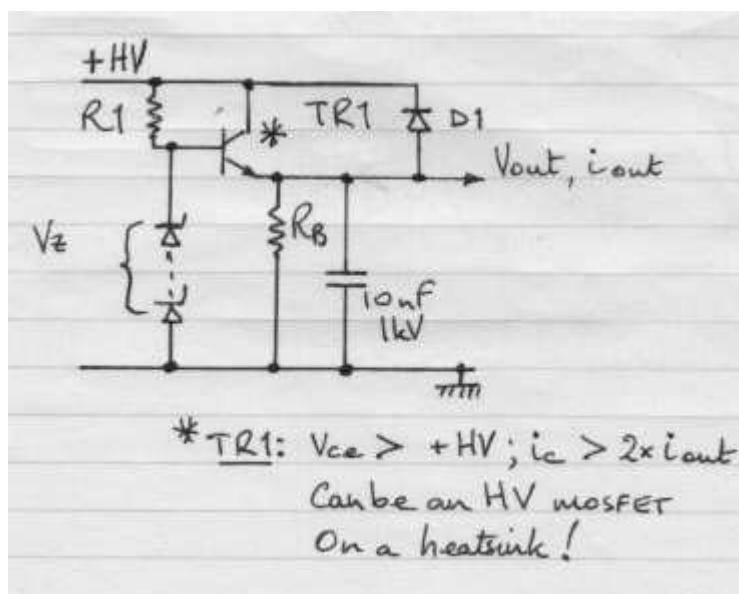 +HV
R1
*
TR1
D1
Vout, iout
Vz
RB
10nF
1kV
* TR1: Vce > +HV; ic > 2x iout
Can be an HV MOSFET
On a heatsink!